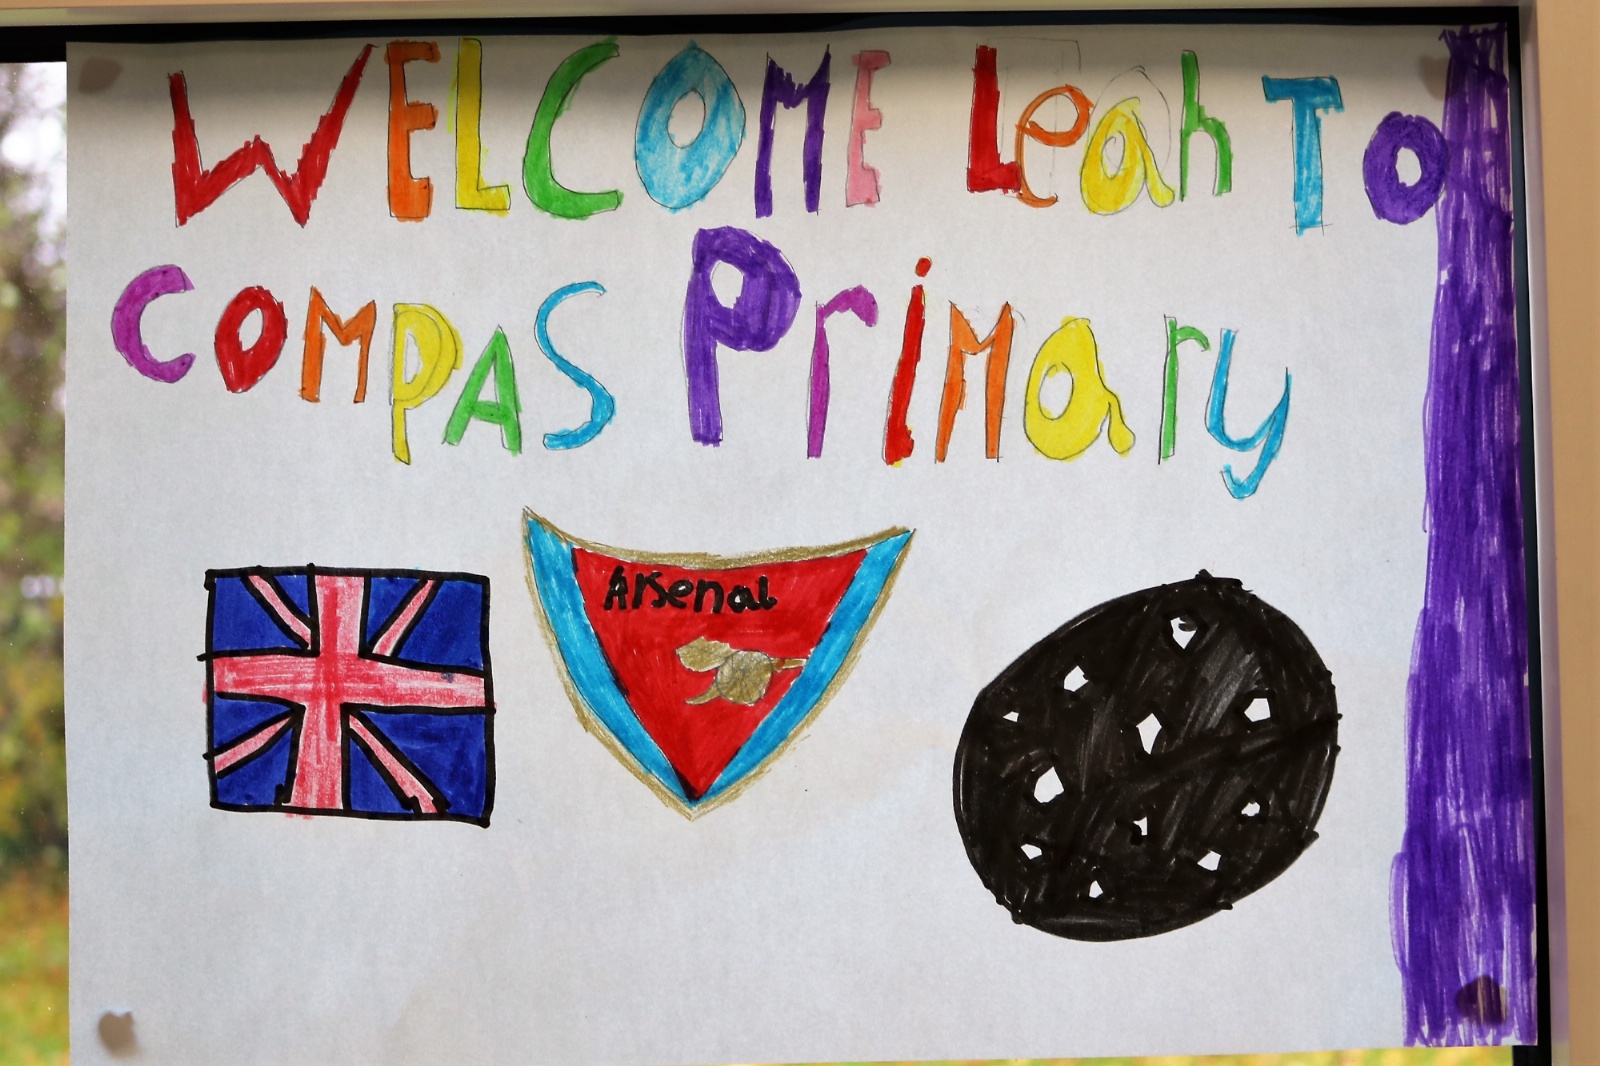 WELCOME Leah To
COMPAS PriMary
Arsenal